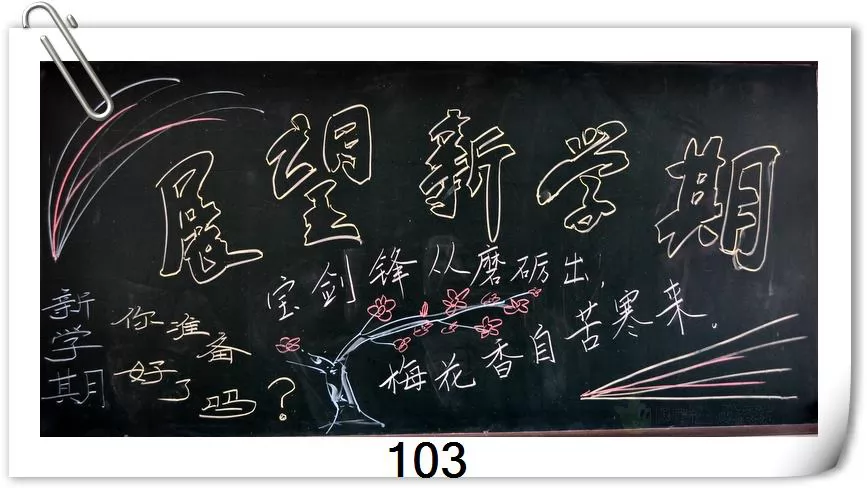 展望新学期
宝剑锋从磨砺出，
梅花香自苦寒来。
新学期
你准备
好了吗？
103